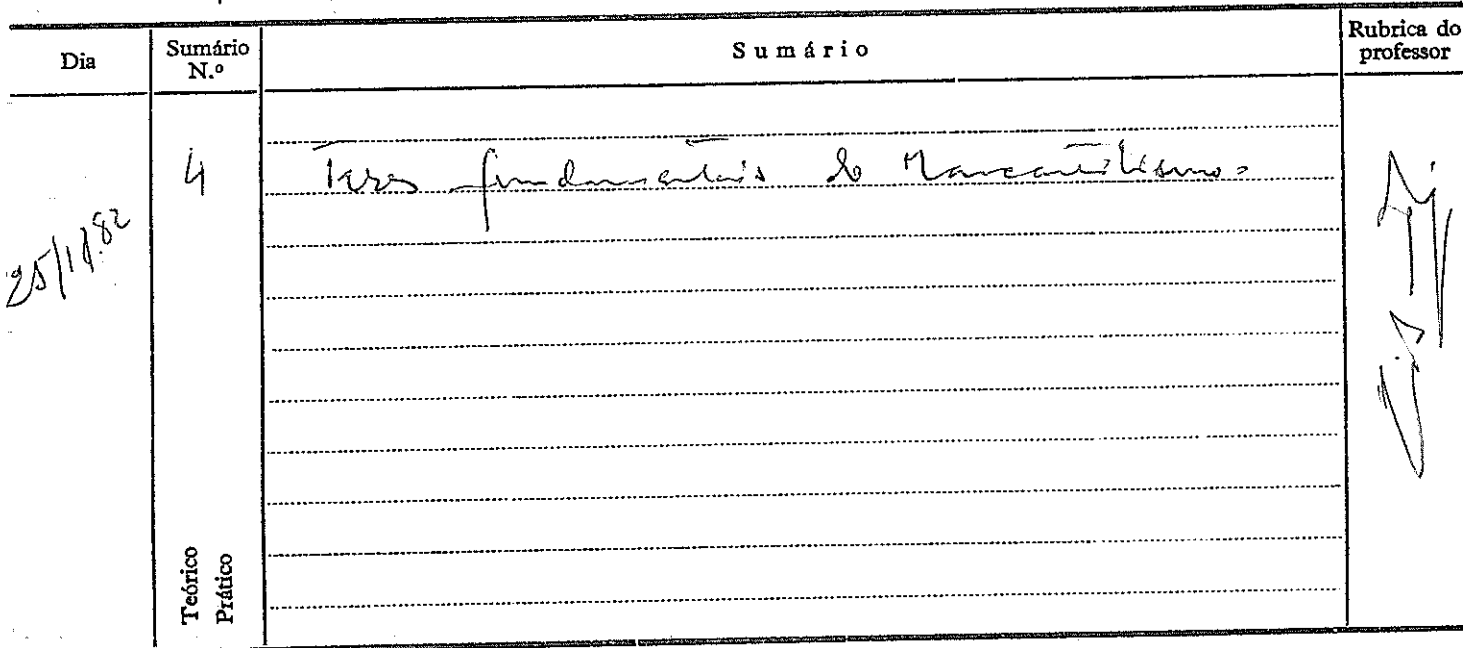 Dia
Sumário
N.º
Sumário
Rubrica do
professor
25/11/82
4
Teses fundamentais do Mercantilismo.
Teórico
Prático